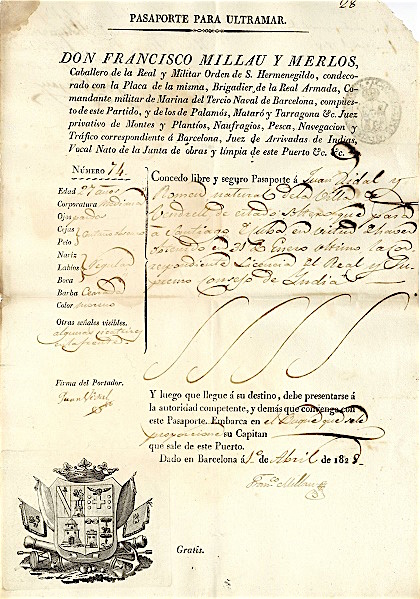 28
PASAPORTE PARA ULTRAMAR.
DON FRANCISCO MILLAU Y MERLOS,
Caballero de la Real y Militar Orden de S. Hermenegildo, condeco-
rado con la Placa de la misma, Brigadier de la Real Armada, Co-
mandante militar de Marina del Tercio Naval de Barcelona, compues-
to de este Partido, y de los de Palamós, Mataró y Tarragona &c. Juez
privativo de Montes y Plantíos, Naufragios, Pesca, Navegacion y
Tráfico correspondiente á Barcelona, Juez de Arrivadas de Indias,
Vocal Nato de la Junta de obras y limpia de este Puerto &c. &c.
NÚMERO 74.
Edad 27 años
Corporatura Mediana
Ojos pardos
Cejas
Pelo
Nariz
Labios Regular
Boca
Barba Cerrada
Color moreno
Otras señales visibles.
algunas
Firma del Portador.
Juan Vidal
Concedo libre y seguro Pasaporte á Juan Vidal y
Romeu natural de la Villa de
Vendrell de estado soltero que pasa
á Santiago de Cuba en virtud de haver
obtenido en 28 de Enero ultimo la co-
rrespondiente Licencia del Real y Su-
premo Consejo de Indias
Y luego que llegue á su destino, debe presentarse á
la autoridad competente, y demás que convenga con
este Pasaporte. Embarca en el Buque que se le
proporcione su Capitan
que sale de este Puerto.
Dado en Barcelona á 1º de Abril de 1828
Franco Millau
Gratis.